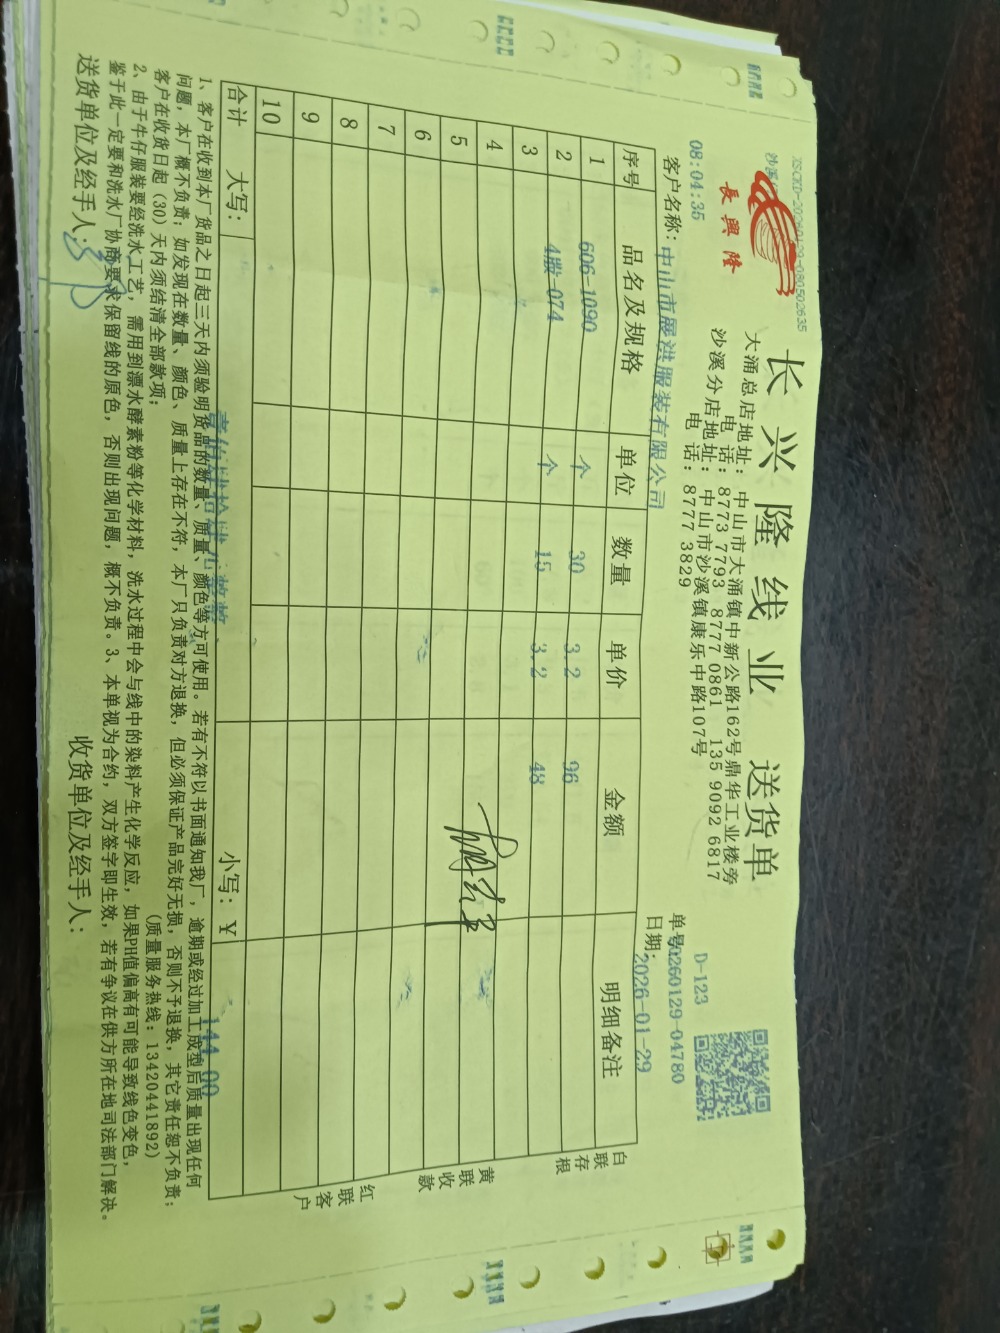 XSCKD-20260129-080502635
沙溪
長興隆
长兴隆线业 送货单
大涌总店地址：中山市大涌镇中新公路162号鼎华工业楼旁
电 话：8773 7793 8777 0861 135 9092 6817
沙溪分店地址：中山市沙溪镇康乐中路107号
电 话：8777 3829
D-123
08:04:35
单号:20260129-04780
客户名称：中山市展洪服装有限公司
日期：2026-01-29
序号 品名及规格 单位 数量 单价 金额 明细备注
1 606-1090 个 30 3.2 96
2 4股-074 个 15 3.2 48
3
4
5
6
7
8
9
10
合计 大写：壹佰肆拾肆元整 小写：￥144.00
白联存根
黄联收款
红联客户
1、客户在收到本厂货品之日起三天内须验明货品的数量、质量、颜色等方可使用。若有不符以书面通知我厂，逾期或经过加工成型后质量出现任何
问题，本厂概不负责；如发现在数量、颜色、质量上存在不符，本厂只负责对方退换，但必须保证产品完好无损，否则不予退换，其它责任恕不负责；
客户在收货日起（30）天内须结清全部款项；
（质量服务热线：13420441892）
2、由于牛仔服装要经洗水工艺，需用到漂水酵素粉等化学材料，洗水过程中会与线中的染料产生化学反应，如果PH值偏高有可能导致线色变色，
鉴于此一定要和洗水厂协商要求保留线的原色，否则出现问题，概不负责。3、本单视为合约，双方签字即生效，若有争议在供方所在地司法部门解决。
送货单位及经手人：
收货单位及经手人：